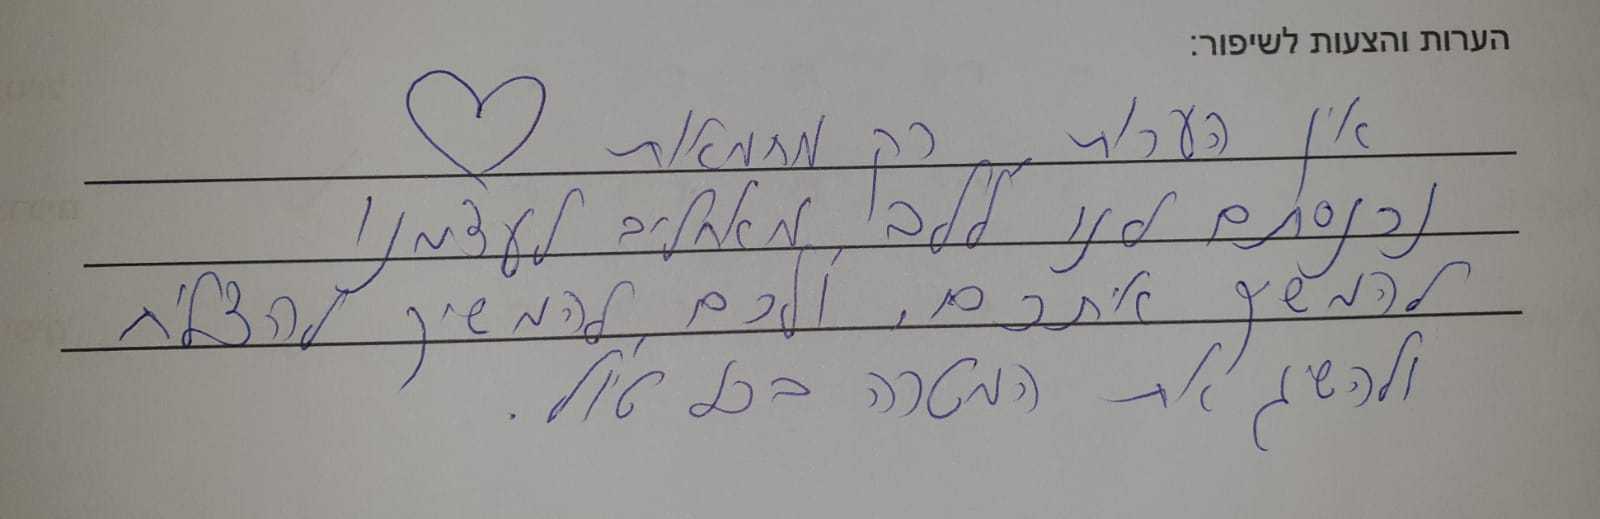 הערות והצעות לשיפור:
אין הערות רק מחמאות
נכנסתם לנו ללב! מאחלים לעצמנו
להמשיך איתכם, ולכם להמשיך להצליח
ולהשיג את המטרה בכל טיול.